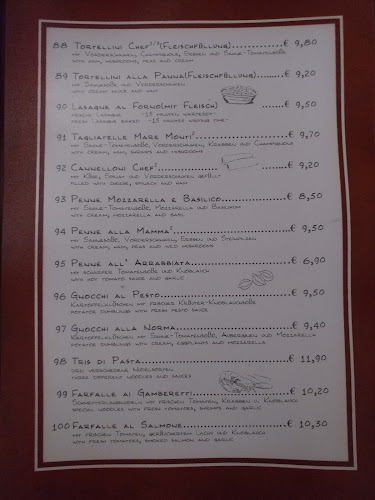 88 Tortellini Chef²/³(Fleischfüllung) € 9,80
mit Vorderschinken, Champignons, Erbsen und Sahne-Tomatensoße
with ham, mushrooms, peas and cream
89 Tortellini alla Panna(Fleischfüllung) € 9,20
mit Sahnesoße und Vorderschinken
with cream sauce and ham
90 Lasagne al Forno(mit Fleisch) € 9,50
frische Lasagne -15 minuten wartezeit-
fresh lasagne baked -15 minutes waiting time-
91 Tagliatelle Mare Monti² € 9,70
mit Sahne-Tomatensoße, Vorderschinken, Krabben und Champignons
with cream, ham, shrimps and mushrooms
92 Cannelloni Chef² € 9,20
mit Käse, Spinat und Vorderschinken gefüllt
filled with cheese, spinach and ham
93 Penne Mozzarella e Basilico € 8,50
mit Sahne-Tomatensoße, Mozzarella und Basilikum
with cream, mozzarella and basil
94 Penne alla Mamma² € 9,50
mit Sahnesoße, Vorderschinken, Erbsen und Steinpilzen
with cream, ham, peas and wild mushrooms
95 Penne all' Arrabbiata € 6,90
mit scharfer Tomatensoße und Knoblauch
with hot tomato sauce and garlic
96 Gnocchi al Pesto € 9,50
Kartoffelklöschen mit frischer Kräuter-Knoblauchsoße
potatoe dumblings with fresh pesto sauce
97 Gnocchi alla Norma € 9,40
Kartoffelklöschen mit Sahne-Tomatensoße, Auberginen und Mozzarella
potatoe dumblings with cream, eggplants and mozzarella
98 Tris di Pasta € 11,90
drei verschiedene Nudelsorten
three different noodles and sauces
99 Farfalle ai Gamberetti € 10,20
Schmetterlingsnudeln mit frischen Tomaten, Krabben u. Knoblauch
special noodles with fresh tomatoes, shrimps and garlic
100 Farfalle al Salmone € 10,30
mit frischen Tomaten, geräuchertem Lachs und Knoblauch
with fresh tomatoes, smoked salmon and garlic